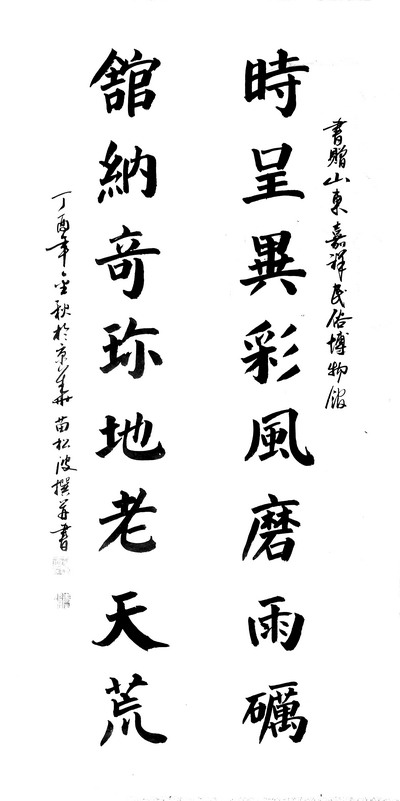 書贈山東嘉祥民俗博物館
時呈異彩風磨雨礪
舘納奇珎地老天荒
丁酉年金秋於京華苗松波撰并書